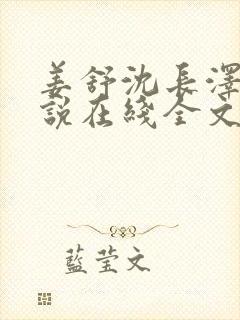 姜舒沈長澤
說在綫全文
藍莹文